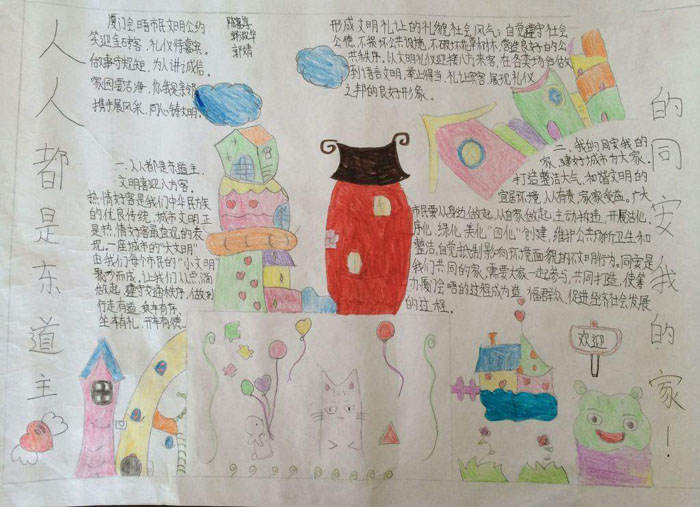 人人都是东道主
的同安我的家！
厦门会晤市民文明公约
笑迎金砖客，礼仪待嘉宾。
做事守规矩，为人讲诚信。
家园要洁净，你我是亲邻
携手展风采，同心铸文明。
形成文明礼让的礼貌社会风气；自觉遵守社会
公德，不损坏公共设施，不破坏花草树木，营造良好的公
共秩序。以文明礼仪迎接八方来客，在各类场合做
到语言文明，举止得当，礼让宾客，展现礼仪
之邦的良好形象。
一．人人都是东道主，
文明喜迎八方客。
热情好客是我们中华民族
的优良传统，城市文明正
是热情好客最直观的表
现。一座城市的“大文明”
由我们每个市民的“小文明”
聚沙而成，让我们从点滴
做起，遵守交通秩序，做到
行走有道，乘车有序，
坐车有礼，开车有德。
二．我的同安我的
家，建好城市为大家。
打造整洁大气，和谐文明的
宜居环境，人人有责，家家受益。广大
市民要从身边做起，从自家做起，主动
序化，绿化，美化“四化”创建，维护公共场所卫生和
整洁，自觉抵制影响环境面貌的不文明行为。同安是
我们共同的家，需要大家一起参与，共同打造，使
力厦门会晤的过程成为造福群众，促进经济社会发展
的过程。
欢迎